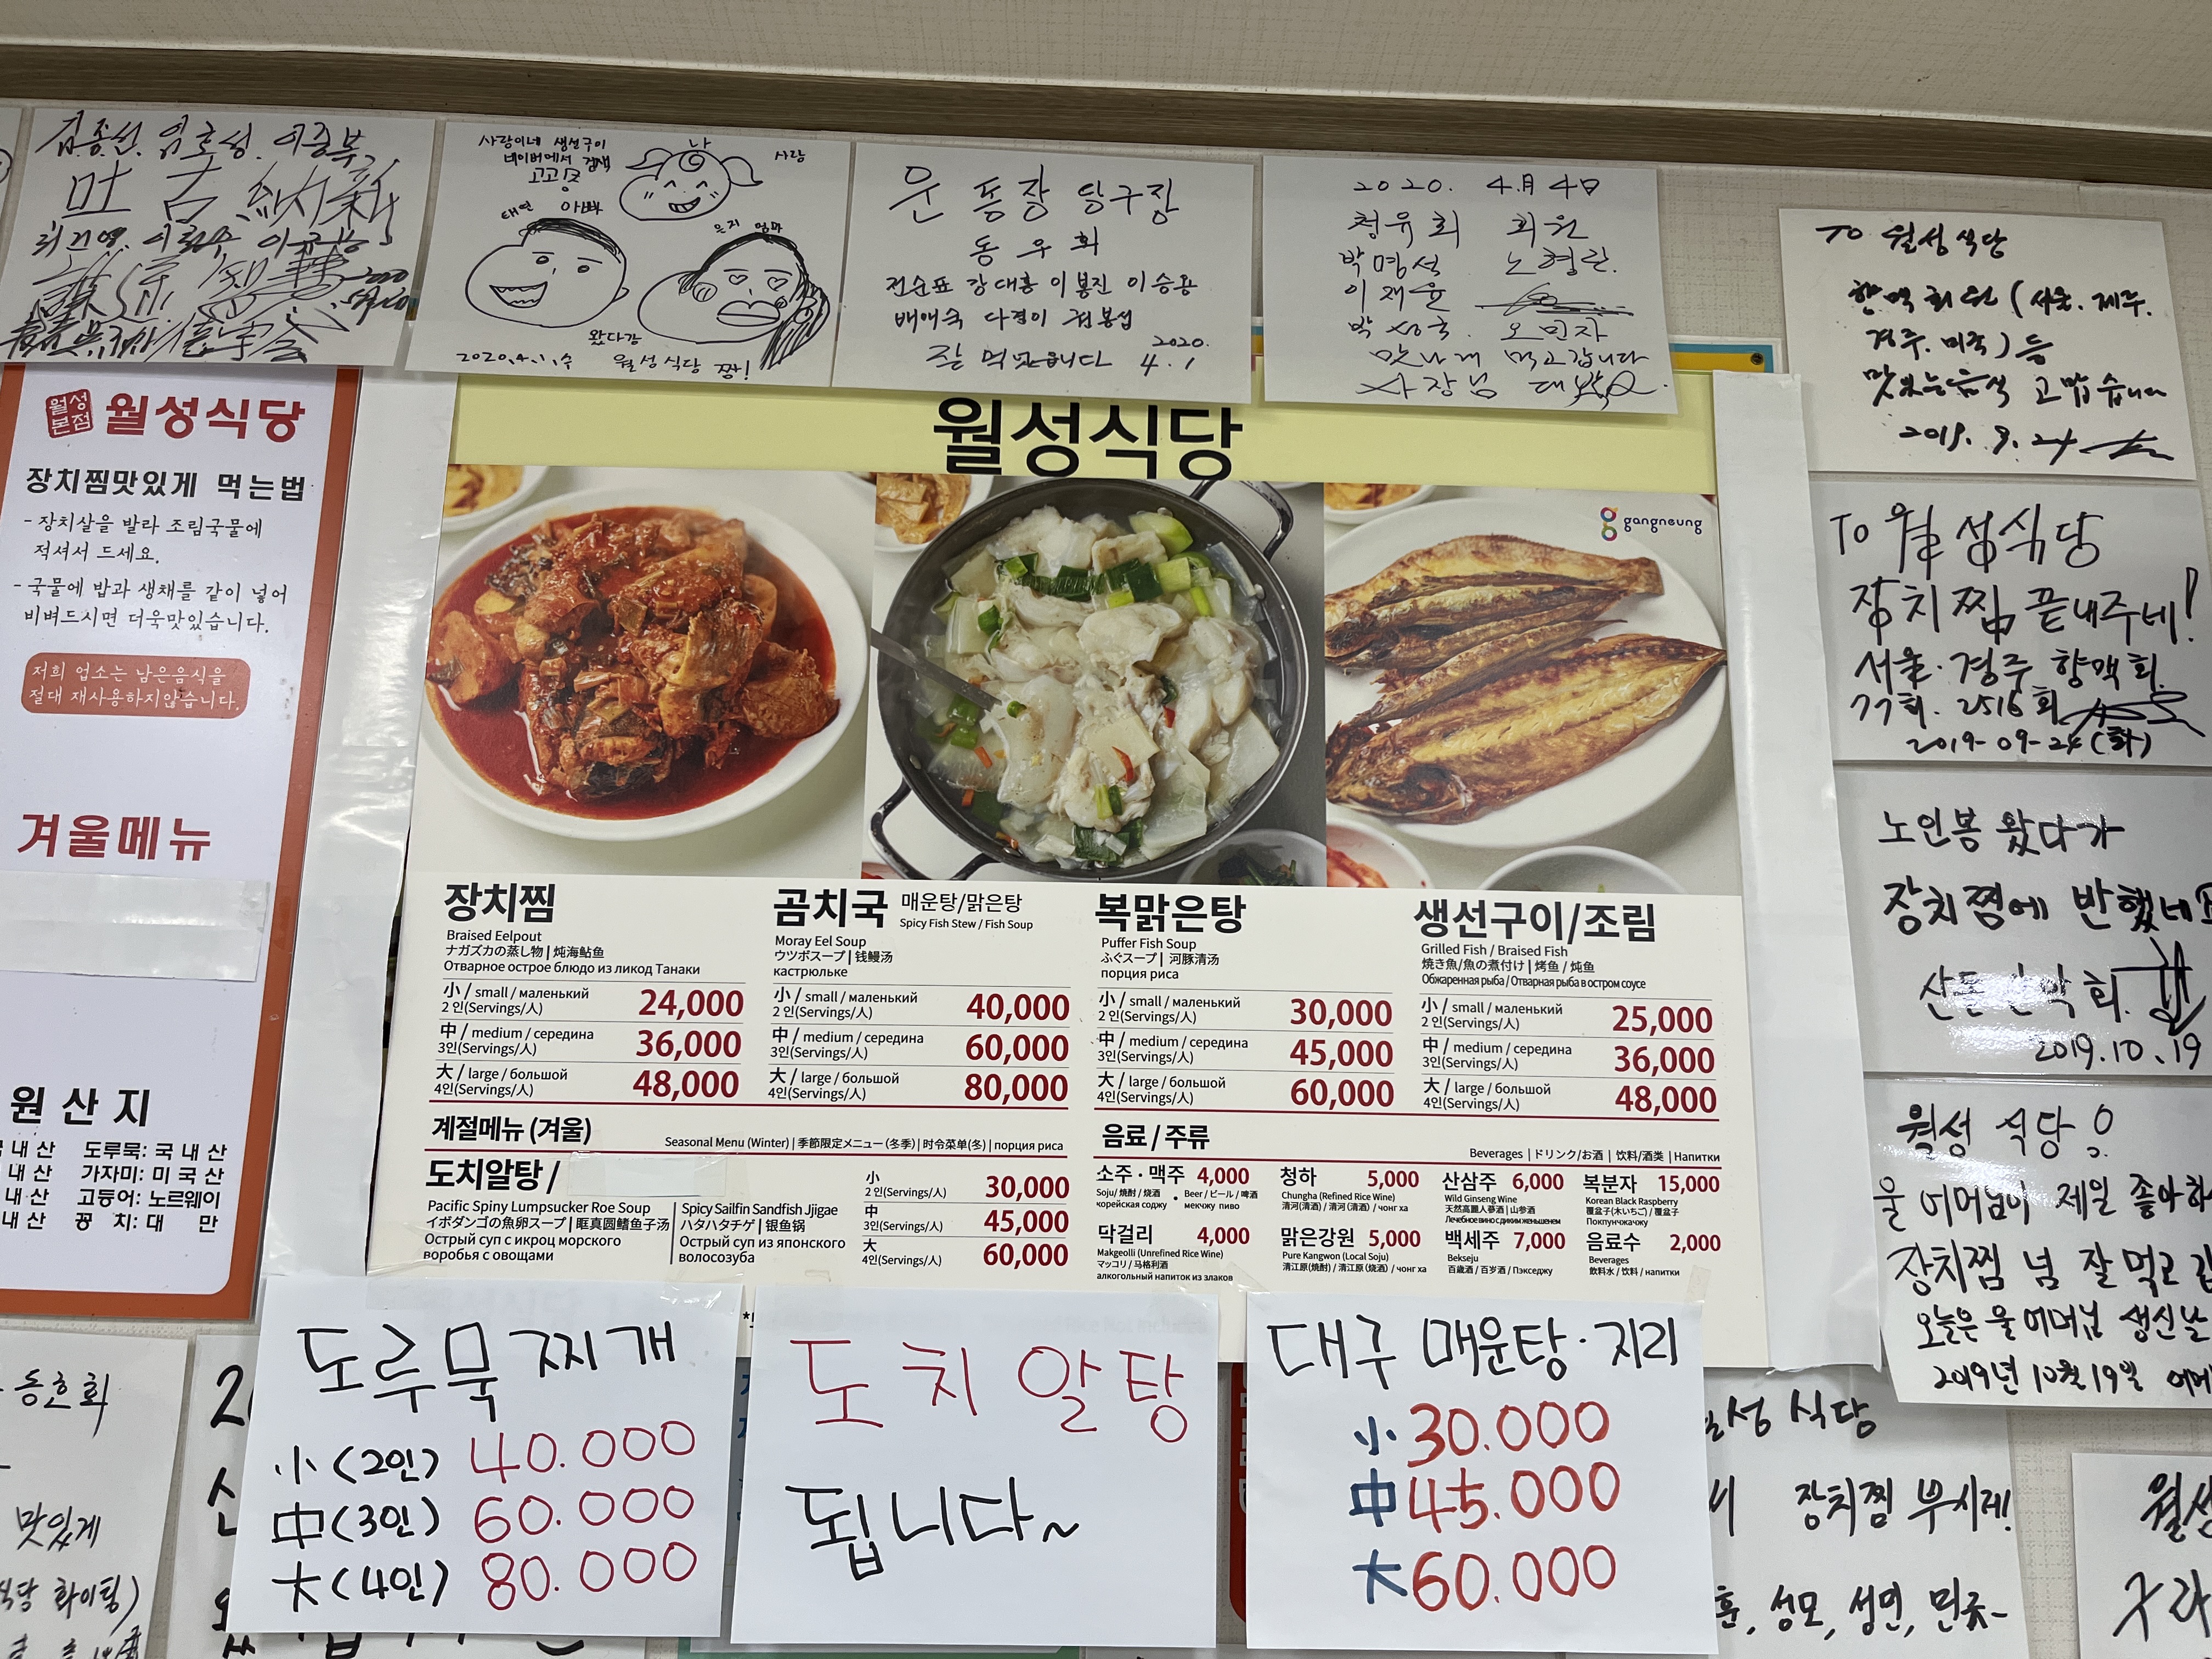 김종선. 임호성. 이중복
吐古納新
사랑이네 생선구이
네이버에서 검색
고고싱
나
사랑
태연 아빠
은지 엄마
왔다감
2020.4.1.수 월성식당 짱!
운동장 당구장
동우회
전순표 강대흥 이봉진 이승용
배애숙 다경이 권봉섭
2020.
잘 먹었습니다 4.1
2020. 4月 4日
청유회 회원
박명석 노형란.
이재윤
오민자
맛나게 먹고갑니다
사장님 대박
TO 월성식당
향맥회원 (서울. 제주.
경주. 미국) 등
맛있는음식 고맙습니다
2019. 9. 24
TO 월성식당
장치찜 끝내주네!
서울·경주 향맥회.
77회. 2516회
2019-09-24 (화)
노인봉 왔다가
장치찜에 반했네요
산악회.
2019.10.19
월성 식당
울 어머님이 제일 좋아하
장치찜 넘 잘 먹고 갑
오늘은 울 어머님 생신날
2019년 10월 19일
월성
본점
월성식당
장치찜맛있게 먹는법
- 장치살을 발라 조림국물에
적셔서 드세요.
- 국물에 밥과 생채를 같이 넣어
비벼드시면 더욱맛있습니다.
저희 업소는 남은음식을
절대 재사용하지않습니다.
겨울메뉴
원산지
국내산 도루묵: 국내산
내산 가자미: 미국산
내산 고등어: 노르웨이
내산 꽁치: 대만
월성식당
gangneung
장치찜
Braised Eelpout
ナガズカの蒸し物 | 炖海鲇鱼
Отварное острое блюдо из ликод Танаки
小 / small / маленький
2 인(Servings/人) 24,000
中 / medium / середина
3인(Servings/人) 36,000
大 / large / большой
4인(Servings/人) 48,000
곰치국 매운탕/맑은탕
Spicy Fish Stew / Fish Soup
Moray Eel Soup
ウツボスープ | 钱鳗汤
кастрюльке
小 / small / маленький
2 인(Servings/人) 40,000
中 / medium / середина
3인(Servings/人) 60,000
大 / large / большой
4인(Servings/人) 80,000
복맑은탕
Puffer Fish Soup
ふぐスープ | 河豚清汤
порция риса
小 / small / маленький
2 인(Servings/人) 30,000
中 / medium / середина
3인(Servings/人) 45,000
大 / large / большой
4인(Servings/人) 60,000
생선구이/조림
Grilled Fish / Braised Fish
焼き魚/魚の煮付け | 烤鱼 / 炖鱼
Обжаренная рыба / Отварная рыба в остром соусе
小 / small / маленький
2 인(Servings/人) 25,000
中 / medium / середина
3인(Servings/人) 36,000
大 / large / большой
4인(Servings/人) 48,000
계절메뉴 (겨울)
Seasonal Menu (Winter) | 季節限定メニュー (冬季) | 时令菜单(冬) | порция риса
도치알탕 /
Pacific Spiny Lumpsucker Roe Soup
イボダンゴの魚卵スープ | 眶真圆鳍鱼子汤
Острый суп с икроц морского
воробья с овощами
Spicy Sailfin Sandfish Jjigae
ハタハタチゲ | 银鱼锅
Острый суп из японского
волосозуба
小
2 인(Servings/人) 30,000
中
3인(Servings/人) 45,000
大
4인(Servings/人) 60,000
음료 / 주류
Beverages | ドリンク/お酒 | 饮料/酒类 | Напитки
소주 · 맥주 4,000
Soju/ 焼酎 / 烧酒
корейская соджу
Beer / ビール / 啤酒
мекчжу пиво
청하 5,000
Chungha (Refined Rice Wine)
清河(清酒) / 清河 (清酒) / чонг ха
산삼주 6,000
Wild Ginseng Wine
天然高麗人蔘酒 | 山参酒
Лечебное вино с диким женьшенем
복분자 15,000
Korean Black Raspberry
覆盆子(木いちご) / 覆盆子
Покпунчжачжу
막걸리 4,000
Makgeolli (Unrefined Rice Wine)
マッコリ / 马格利酒
алкогольный напиток из злаков
맑은강원 5,000
Pure Kangwon (Local Soju)
清江原(焼酎) / 清江原 (烧酒) / чонг ха
백세주 7,000
Bekseju
百歳酒 / 百岁酒 / Пэкседжу
음료수 2,000
Beverages
飲料水 / 饮料 / напитки
도루묵찌개
小(2인) 40.000
中(3인) 60.000
大(4인) 80.000
도치알탕
됩니다~
대구 매운탕·지리
小 30.000
中 45.000
大 60.000
동호회
맛있게
식당 화이팅)
성 식당
장치찜 부시게!
훈, 성모, 성민, 민규-
월성